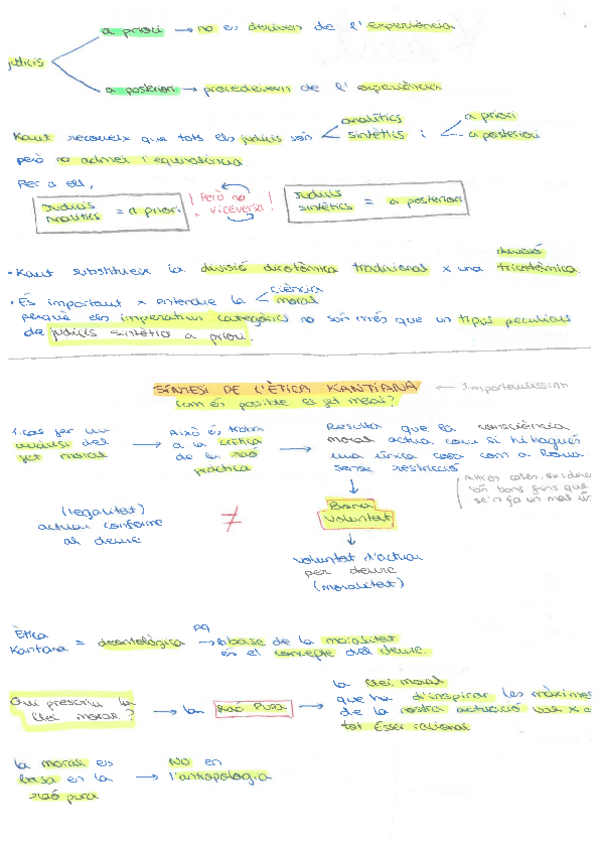 a priori → no es deriven de l'experiència
judicis
a posteriori → procedeixen de l'experiència
analítics a priori
Kant reconeix que tots els judicis són sintètics i a posteriori
però no admet l'equivalència.
Per a ell,
Judicis analítics = a priori
¡Però no viceversa!
Judicis sintètics = a posteriori
divisió
- Kant substitueix la divisió dicotòmica tradicional x una tricotòmica.
ciència
• És important x entendre la moral
perquè els imperatius categòrics no són més que un tipus peculiar
de judicis sintètics a priori.
SÍNTESI DE L'ÈTICA KANTIANA ← Importantíssim
Com és possible el fet moral?
1. Cas fer un anàlisi del fet moral
→ Això és tasca a la crítica de la raó pràctica
→ Resulta que la consciència
moral actua com si hi hagués
una única cosa com a bona
sense restricció
↓
Bona voluntat
↓
voluntat d'actuar
per deure
(moralitat)
≠
(legalitat)
actuar conforme
al deure
Ètica Kantiana = deontològica pq → la base de la moralitat
és el concepte del deure.
Qui prescriu la llei moral?
→ la RAÓ PURA →
la llei moral
que ha d'inspirar les màximes
de la nostra actuació
tot ésser racional
la moral es basa en la raó pura
→ NO en l'antropologia